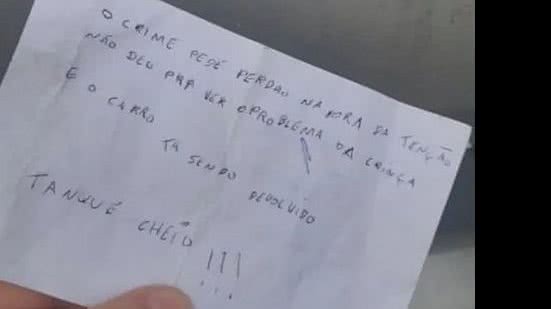 O CRIME PEDE PERDÃO NA HORA DA TENÇÃO
NÃO DEU PRA VER O PROBLEMA DA CRINÇA
E O CARRO TA SENDO DEVOLVIDO
TANQUE CHEIO !!!